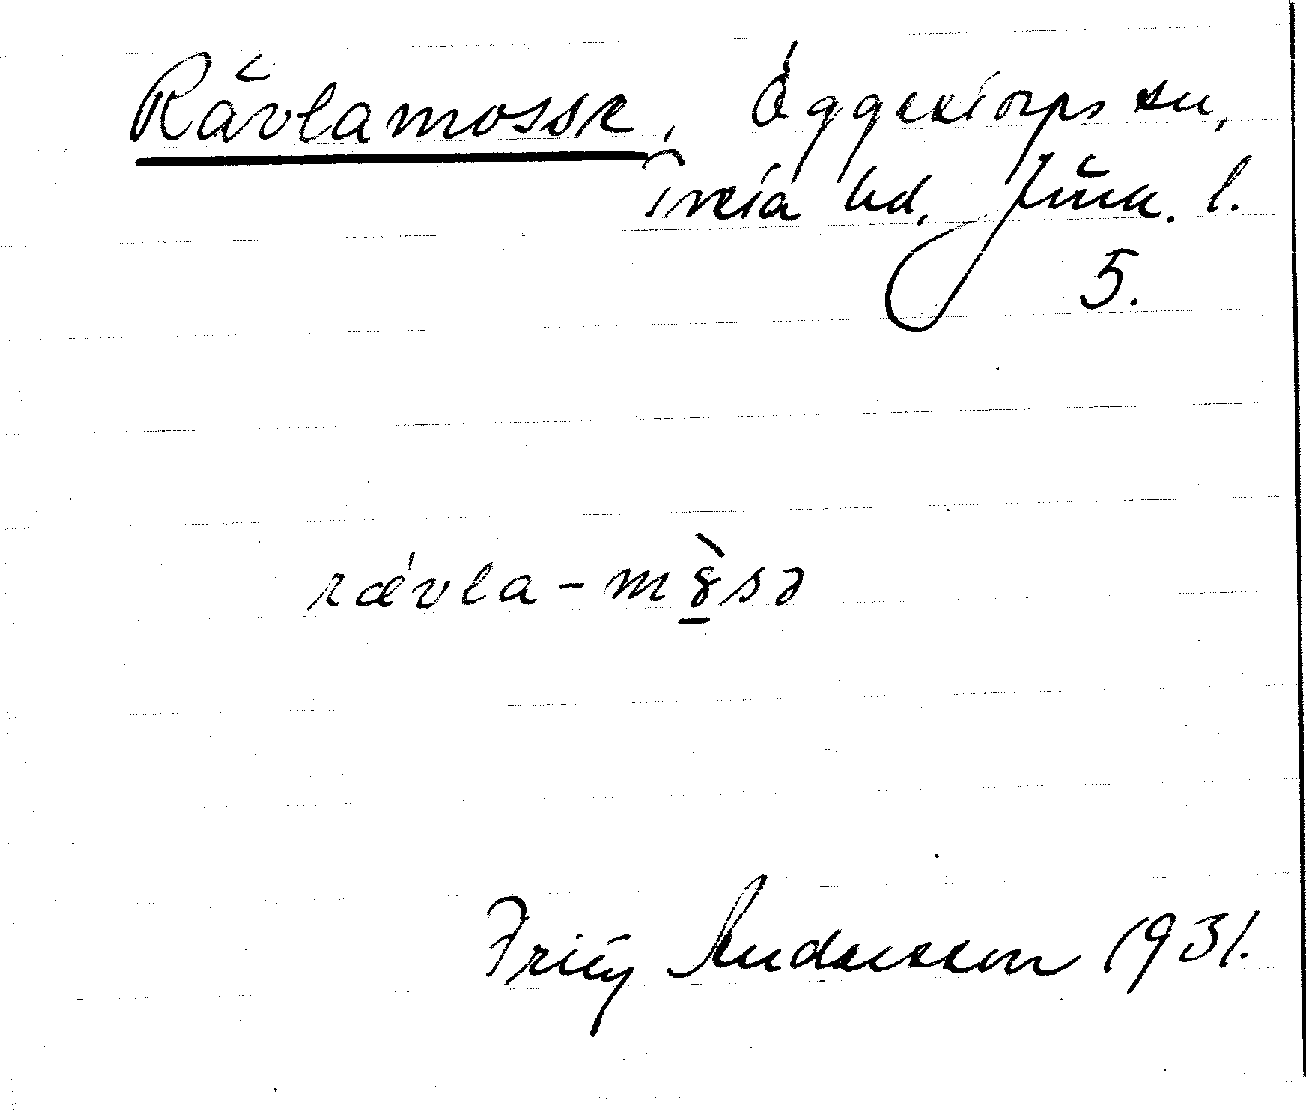 Rävlamosse, Öggestorps sn,
Tveta hd, Jönk. l.
5.
rævla-mɣ̱̀sə
Fritz Andersson 1931.